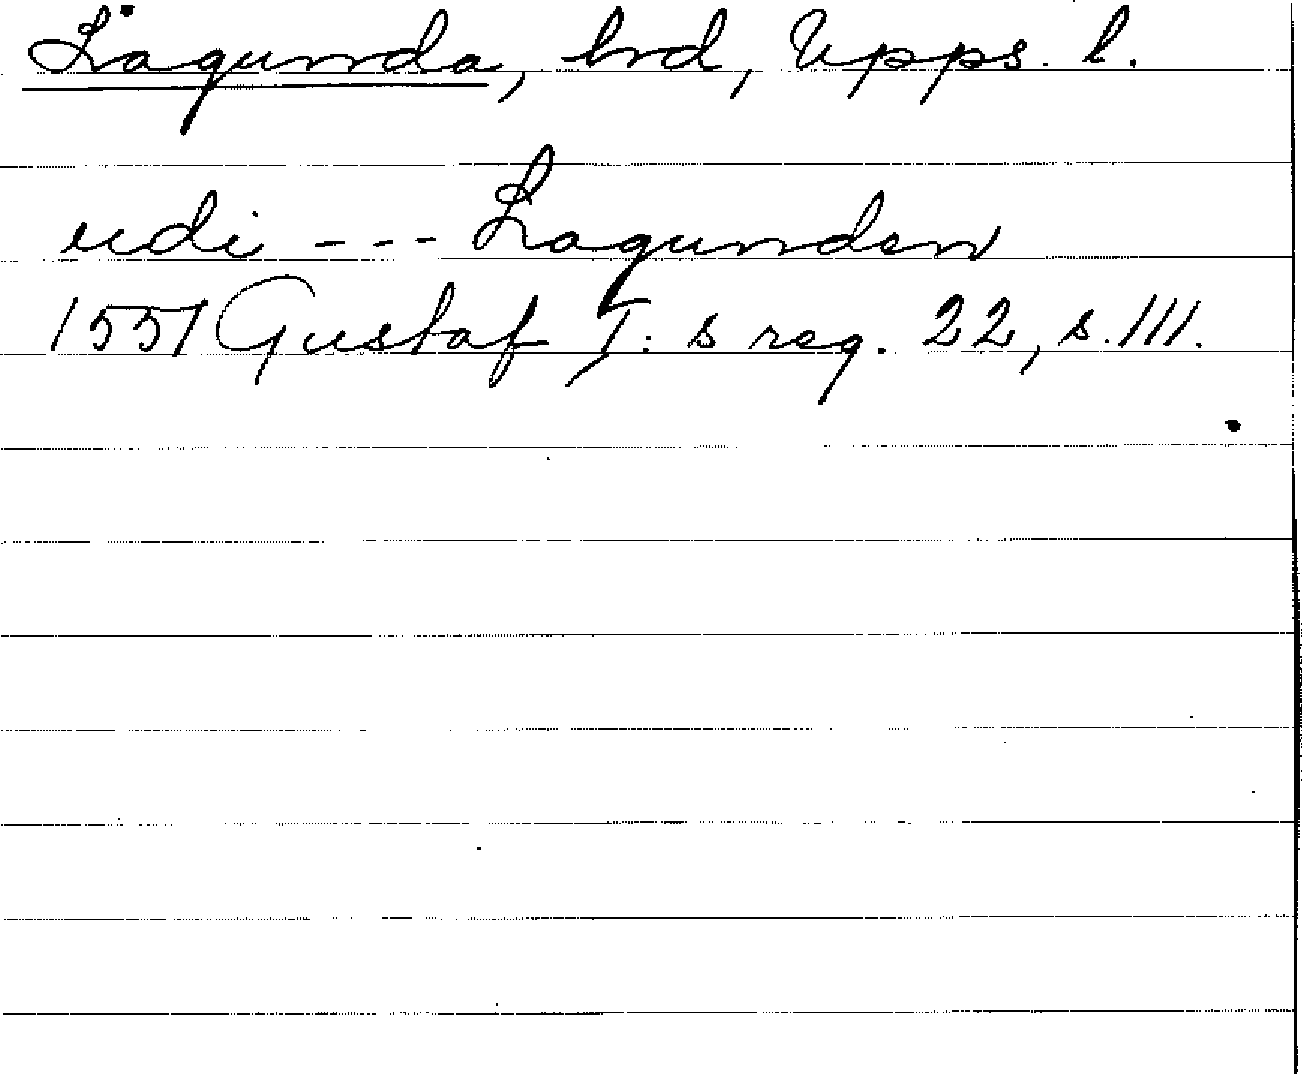 Lagunda, hrd, Upps. l.
udi --- Lagunden
1551 Gustaf I: s reg. 22, s. 111.